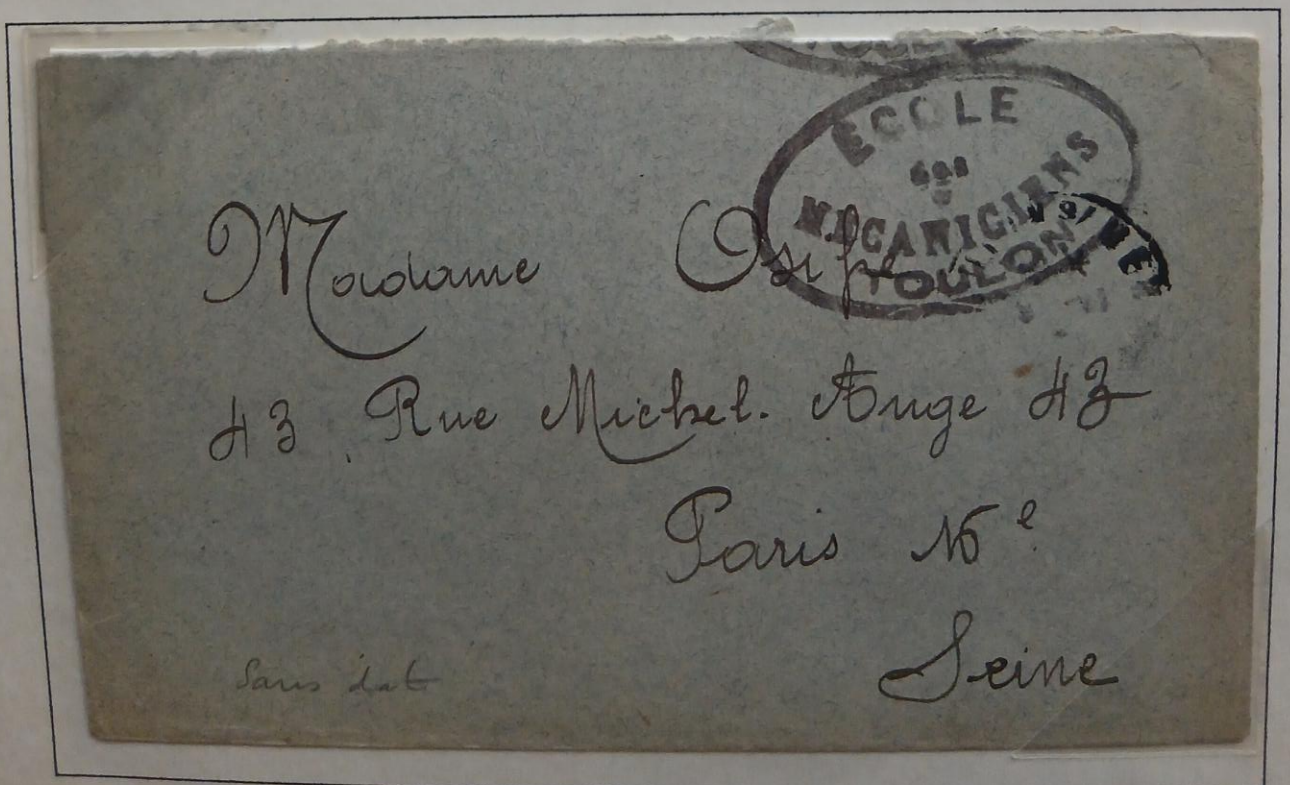 ÉCOLE
des
MÉCANICIENS
TOULON
Madame
43 Rue Michel. Ange 43
Paris 16e
Seine
Sans dat